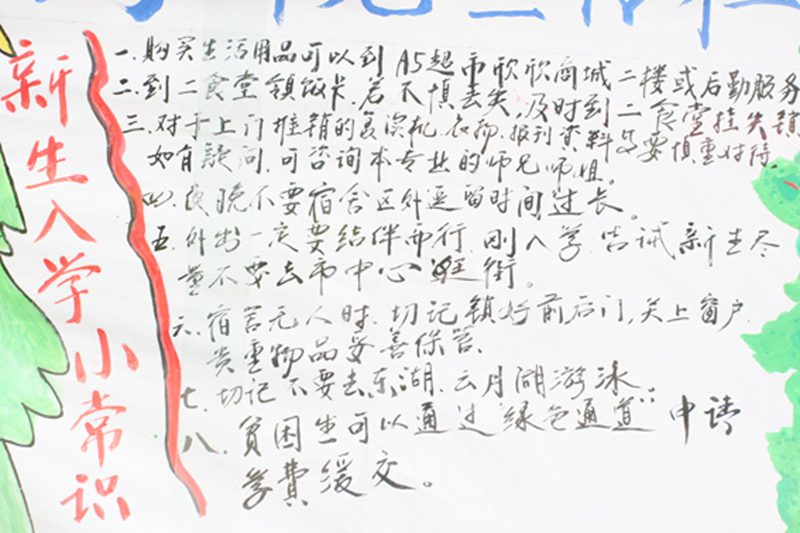 新生入学小常识
一.购买生活用品可以到A5起市欣欣商城二楼或后勤服务
二.到二食堂领饭卡.若不慎丢失,及时到二食堂挂失销
三.对于上门推销的复读机.衣物.报刊资料等要慎重对待
如有疑问,可咨询本专业的师兄师姐。
四.夜晚不要宿舍区外逗留时间过长。
五.外出一定要结伴而行.刚入学.告诫新生尽
量不要去市中心逛街。
六.宿舍无人时.切记锁好前后门,关上窗户.
贵重物品妥善保管.
七.切记不要去东湖.云月湖游泳.
八.贫困生可以通过"绿色通道"申请
学费缓交。